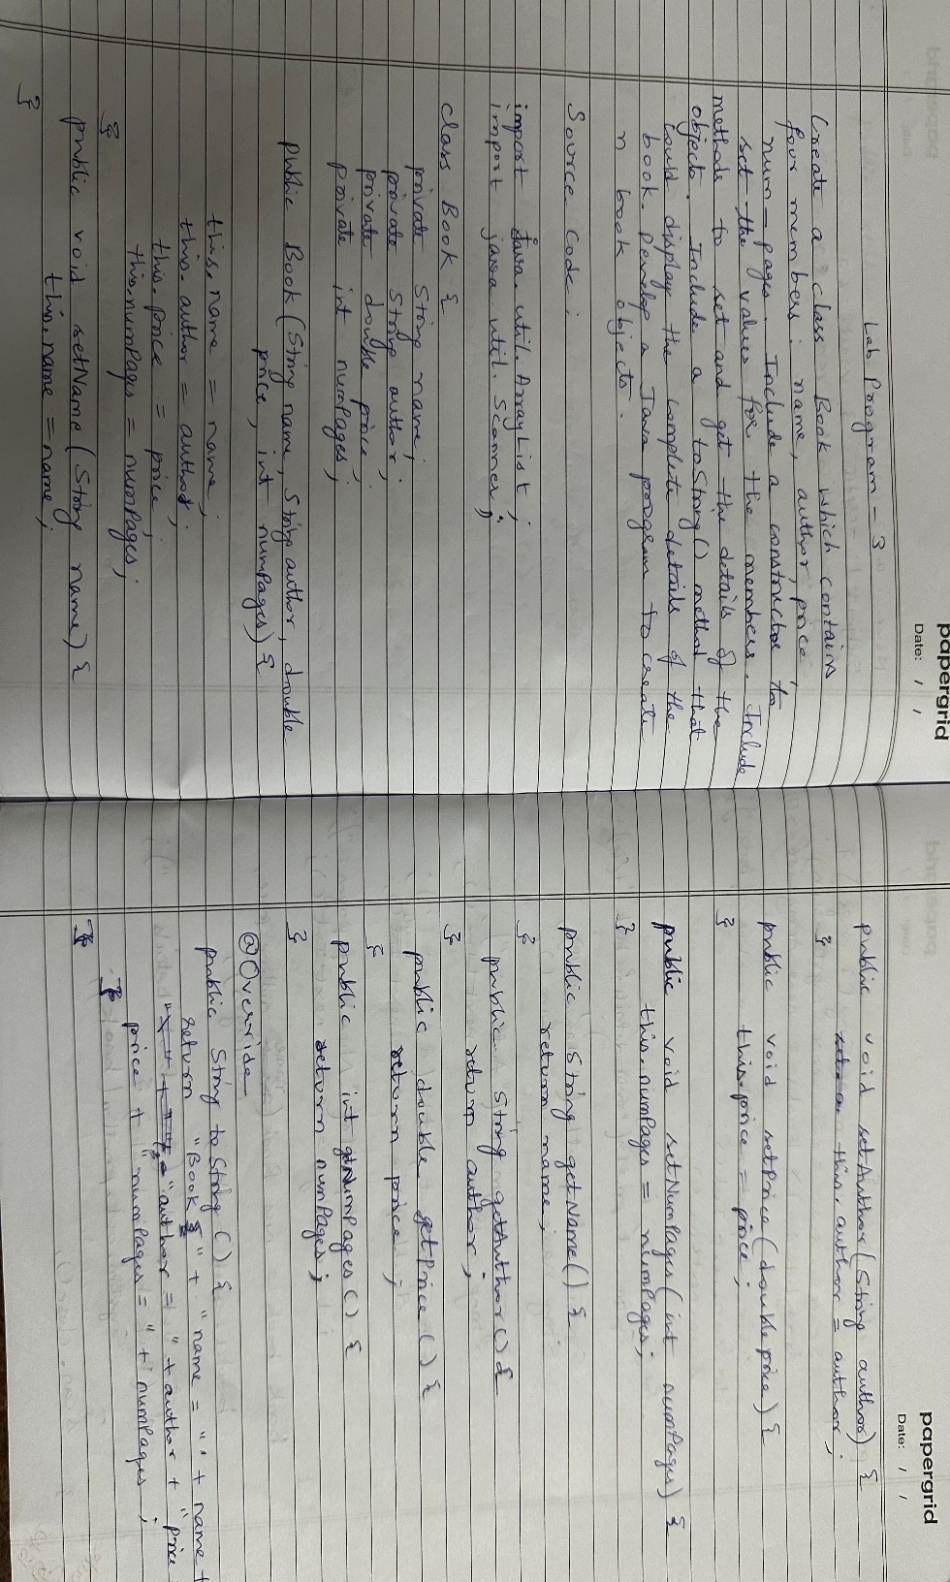 papergrid
Date: / /
Lab Program - 3
Create a class Book which contains
four members: name, author, price,
num-pages. Include a constructor to
set the values for the members. Include
methods to set and get the details of the
objects. Include a toString() method that
could display the complete details of the
book. Develop a Java program to create
n book objects.
Source Code:
import java.util.ArrayList;
import java.util.Scanner;
class Book {
private String name;
private String author;
private double price;
private int numPages;
public Book (String name, String author, double
price, int numPages) {
this.name = name;
this.author = author;
this.price = price;
this.numPages = numPages;
}
public void setName (String name) {
this.name = name;
}
papergrid
Date: / /
public void setAuthor (String author) {
this.author = author;
}
public void setPrice (double price) {
this.price = price;
}
public void setNumPages (int numPages) {
this.numPages = numPages;
}
public String getName() {
return name;
}
public String getAuthor () {
return author;
}
public double getPrice () {
return price;
}
public int getNumPages () {
return numPages;
}
@Override
public String toString () {
return "Book {" + "name = "' + name +
"author = " + author + "price
price + "numPages = " + numPages;
}
}